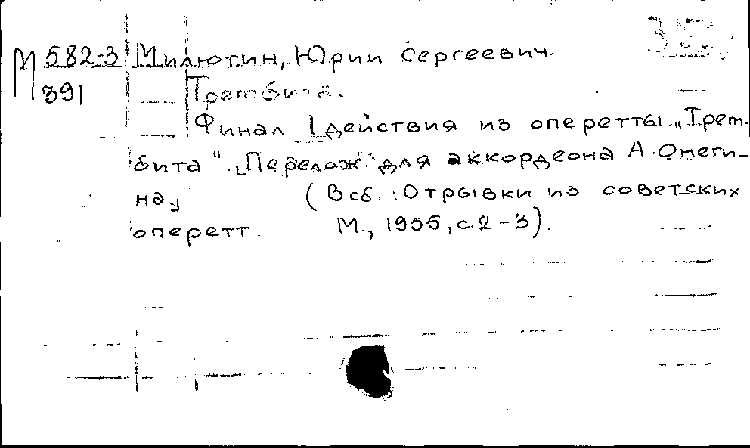 М 582-3 Милютин, Юрий Сергеевич
391 Трембита.
Финал I действия из оперетты „Трем-
бита". [Перелож. для аккордеона А. Онеги-
на] (В сб.: Отрывки из советских
оперетт. М., 1955, с. 2-3).